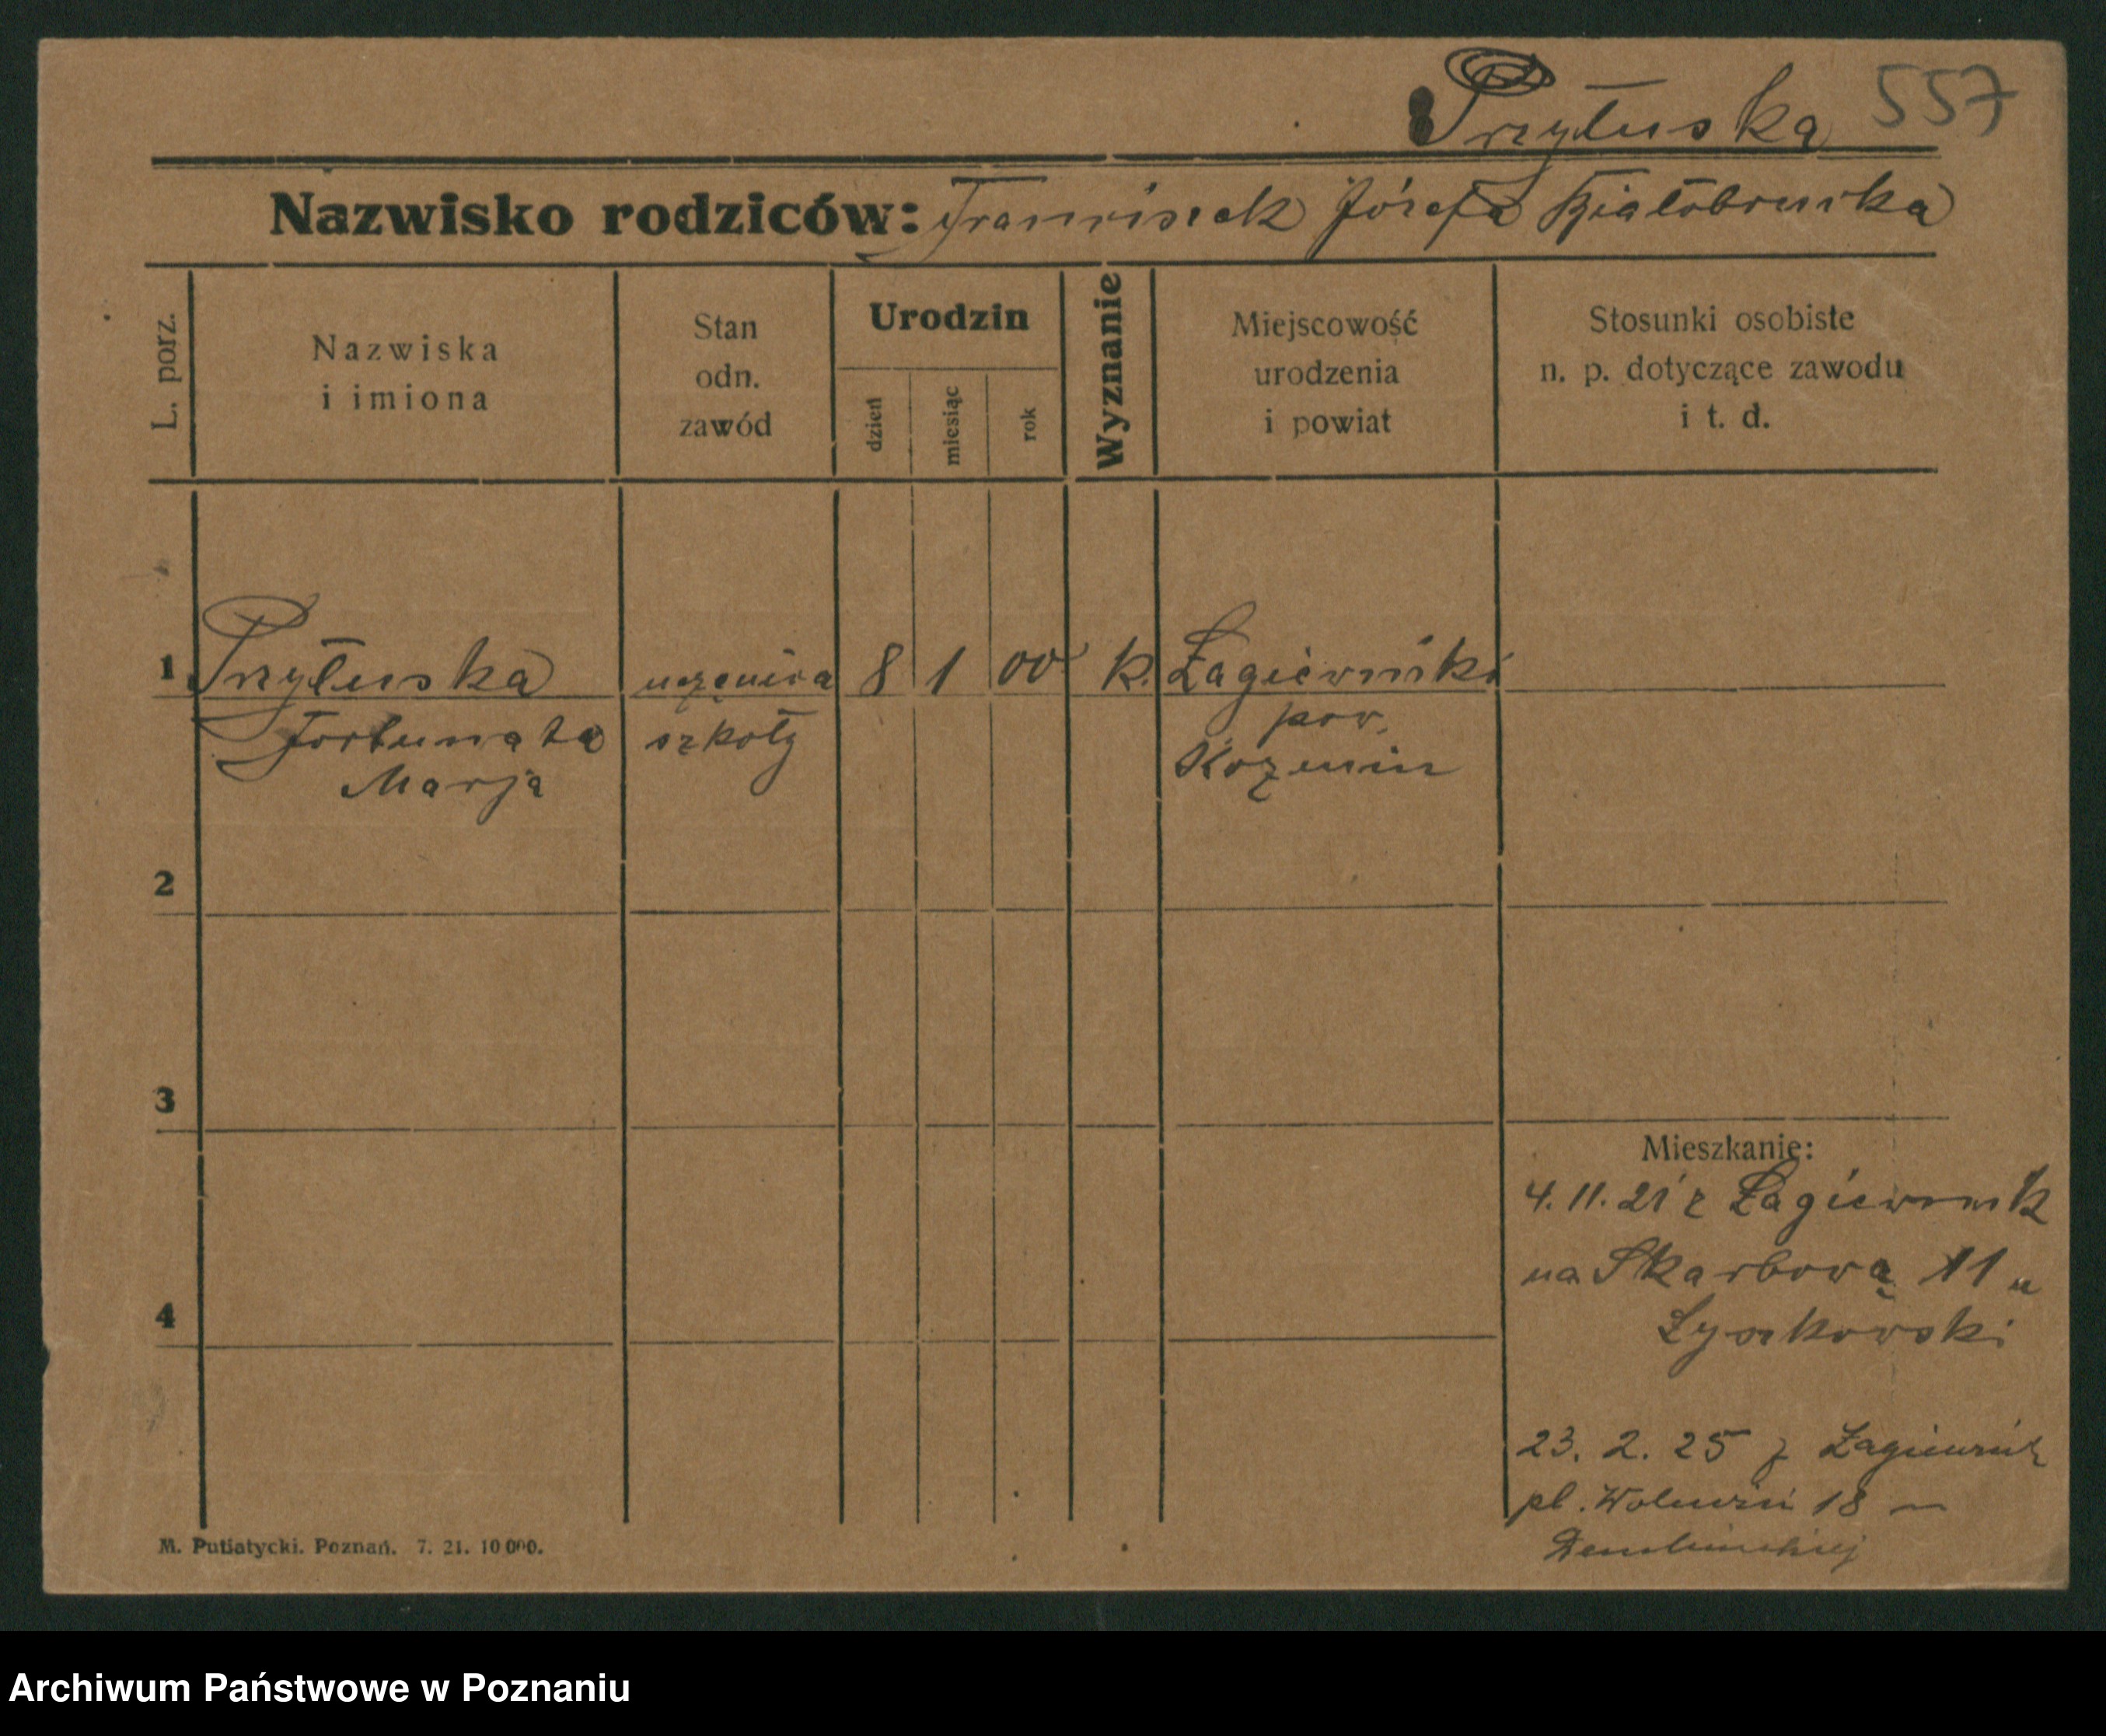 Przyłuska 557
Nazwisko rodziców: Franciszek Józefa Białobrucka
L. porz.
Nazwiska
i imiona
Stan
odn.
zawód
Urodzin
dzień
miesiąc
rok
Wyznanie
Miejscowość
urodzenia
i powiat
Stosunki osobiste
n. p. dotyczące zawodu
i t. d.
1 Przyłuska uczenica 8 1 00 k. Łagiewniki
Fortunata szkoły pow.
Marja Kozmin
2
3
Mieszkanie:
4. 11. 21 z Łagiewnik
na Skarbową 11 u
4
Łyszkowski
23. 2. 25 z Łagiewnik
pl. Wolności 18
M. Putiatycki. Poznań. 7. 21. 10000.
Archiwum Państwowe w Poznaniu